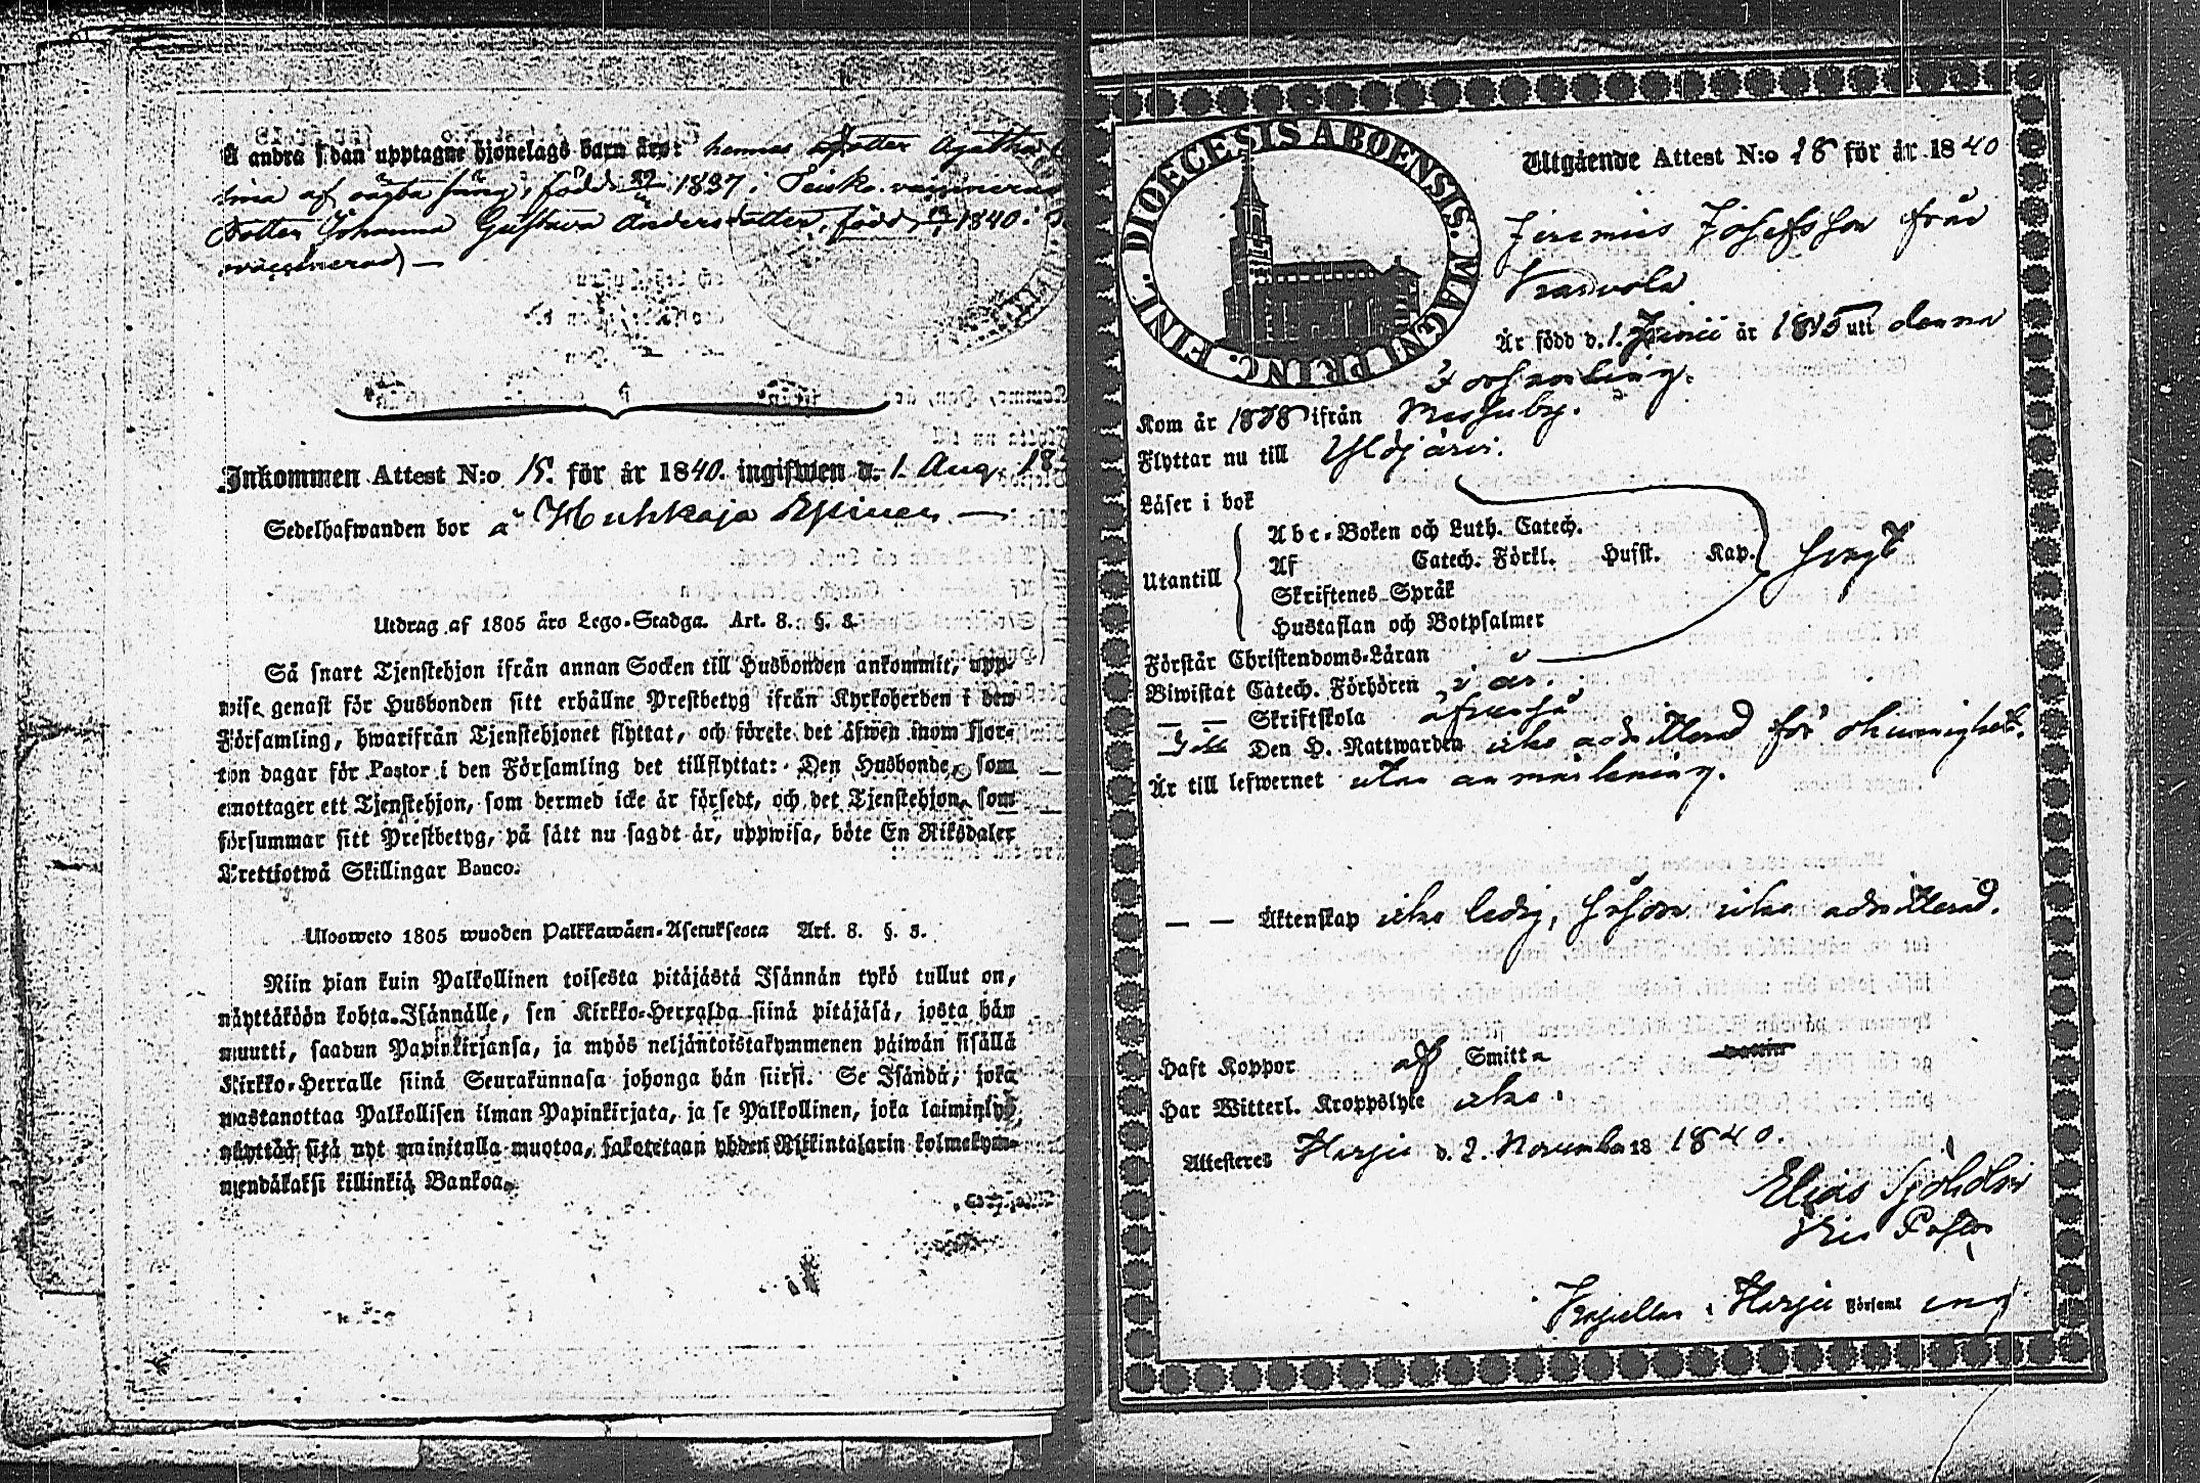 Å andra sidan upptagne hjonelags barn äro: hennes dotter Agatha
af oägta säng, född 1837 i
dotter Johanna Gustava Andersdotter, född 1840.
Inkommen Attest N:o 15. för år 1840. ingifwen d. 1 Aug. 18
Sedelhafwanden bor å
Utdrag af 1805 års Lego-Stadga. Art. 8. §. 8.
Så snart Tjenstehjon ifrån annan Socken till Husbonden ankommit, upp-
wise genast för Husbonden sitt erhållne Prestbetyg ifrån Kyrkoherden i den
Församling, hwarifrån Tjenstehjonet flyttat, och förete det äfwen inom fjor-
ton dagar för Pastor i den Församling det tillflyttat: Den Husbonde, som
emottager ett Tjenstehjon, som dermed icke är försedt, och det Tjenstehjon, som
försummar sitt Prestbetyg, på sätt nu sagdt är, uppwisa, böte En Riksdaler
Trettiotwå Skillingar Banco.
Uloosweto 1805 wuoden Palkkawäen-Asetuksesta Art. 8. §. 8.
Niin pian kuin Palkollinen toisesta pitäjästä Isännän tykö tullut on,
näyttäköön kohta Isännälle, sen Kirkko-Herralda siinä pitäjäsä, josta hän
muutti, saadun Papinkirjansa, ja myös neljäntoistakymmenen päiwän sisällä
Kirkko-Herralle siinä Seurakunnasa johonga hän siirsi. Se Isändä, joka
wastanottaa Palkollisen ilman Papinkirjata, ja se Palkollinen, joka laiminlyö
näyttää sitä nyt mainitulla muotoa, sakotetaan yhden Riikintalarin kolmekym-
mendäkaksi killinkiä Bankoa.
DIOECESIS ABOENSIS. MAGNI PRINC. FINL.
Utgående Attest N:o 18 för år 1840
Jeremias Josefsson från
Är född d. 1. Junii år 1815 uti denna
Församling.
Kom år 1838 ifrån Messuby.
Flyttar nu till Ylöjärvi.
Läser i bok
Utantill
Abc-Boken och Luth. Catech.
Af Catech. Förkl. Husst. Kap.
Skriftenes Språk
Hustaflan och Botpsalmer
swagt
Förstår Christendoms-Läran
Biwistat Catech. Förhören i år.
— — Skriftskola äfwenså
Den H. Nattwarden icke admitterad för okunnighet.
Är till lefwernet utan anmärkning.
— — Äktenskap icke ledig, såsom icke admitterad.
Haft Koppor af Smitta
Har Witterl. Kroppslyte icke.
Attesteres Harju d. 2. November 18 1840.
Elias Sjöholm
Vice Pastor
Kapellan i Harju Församl ing